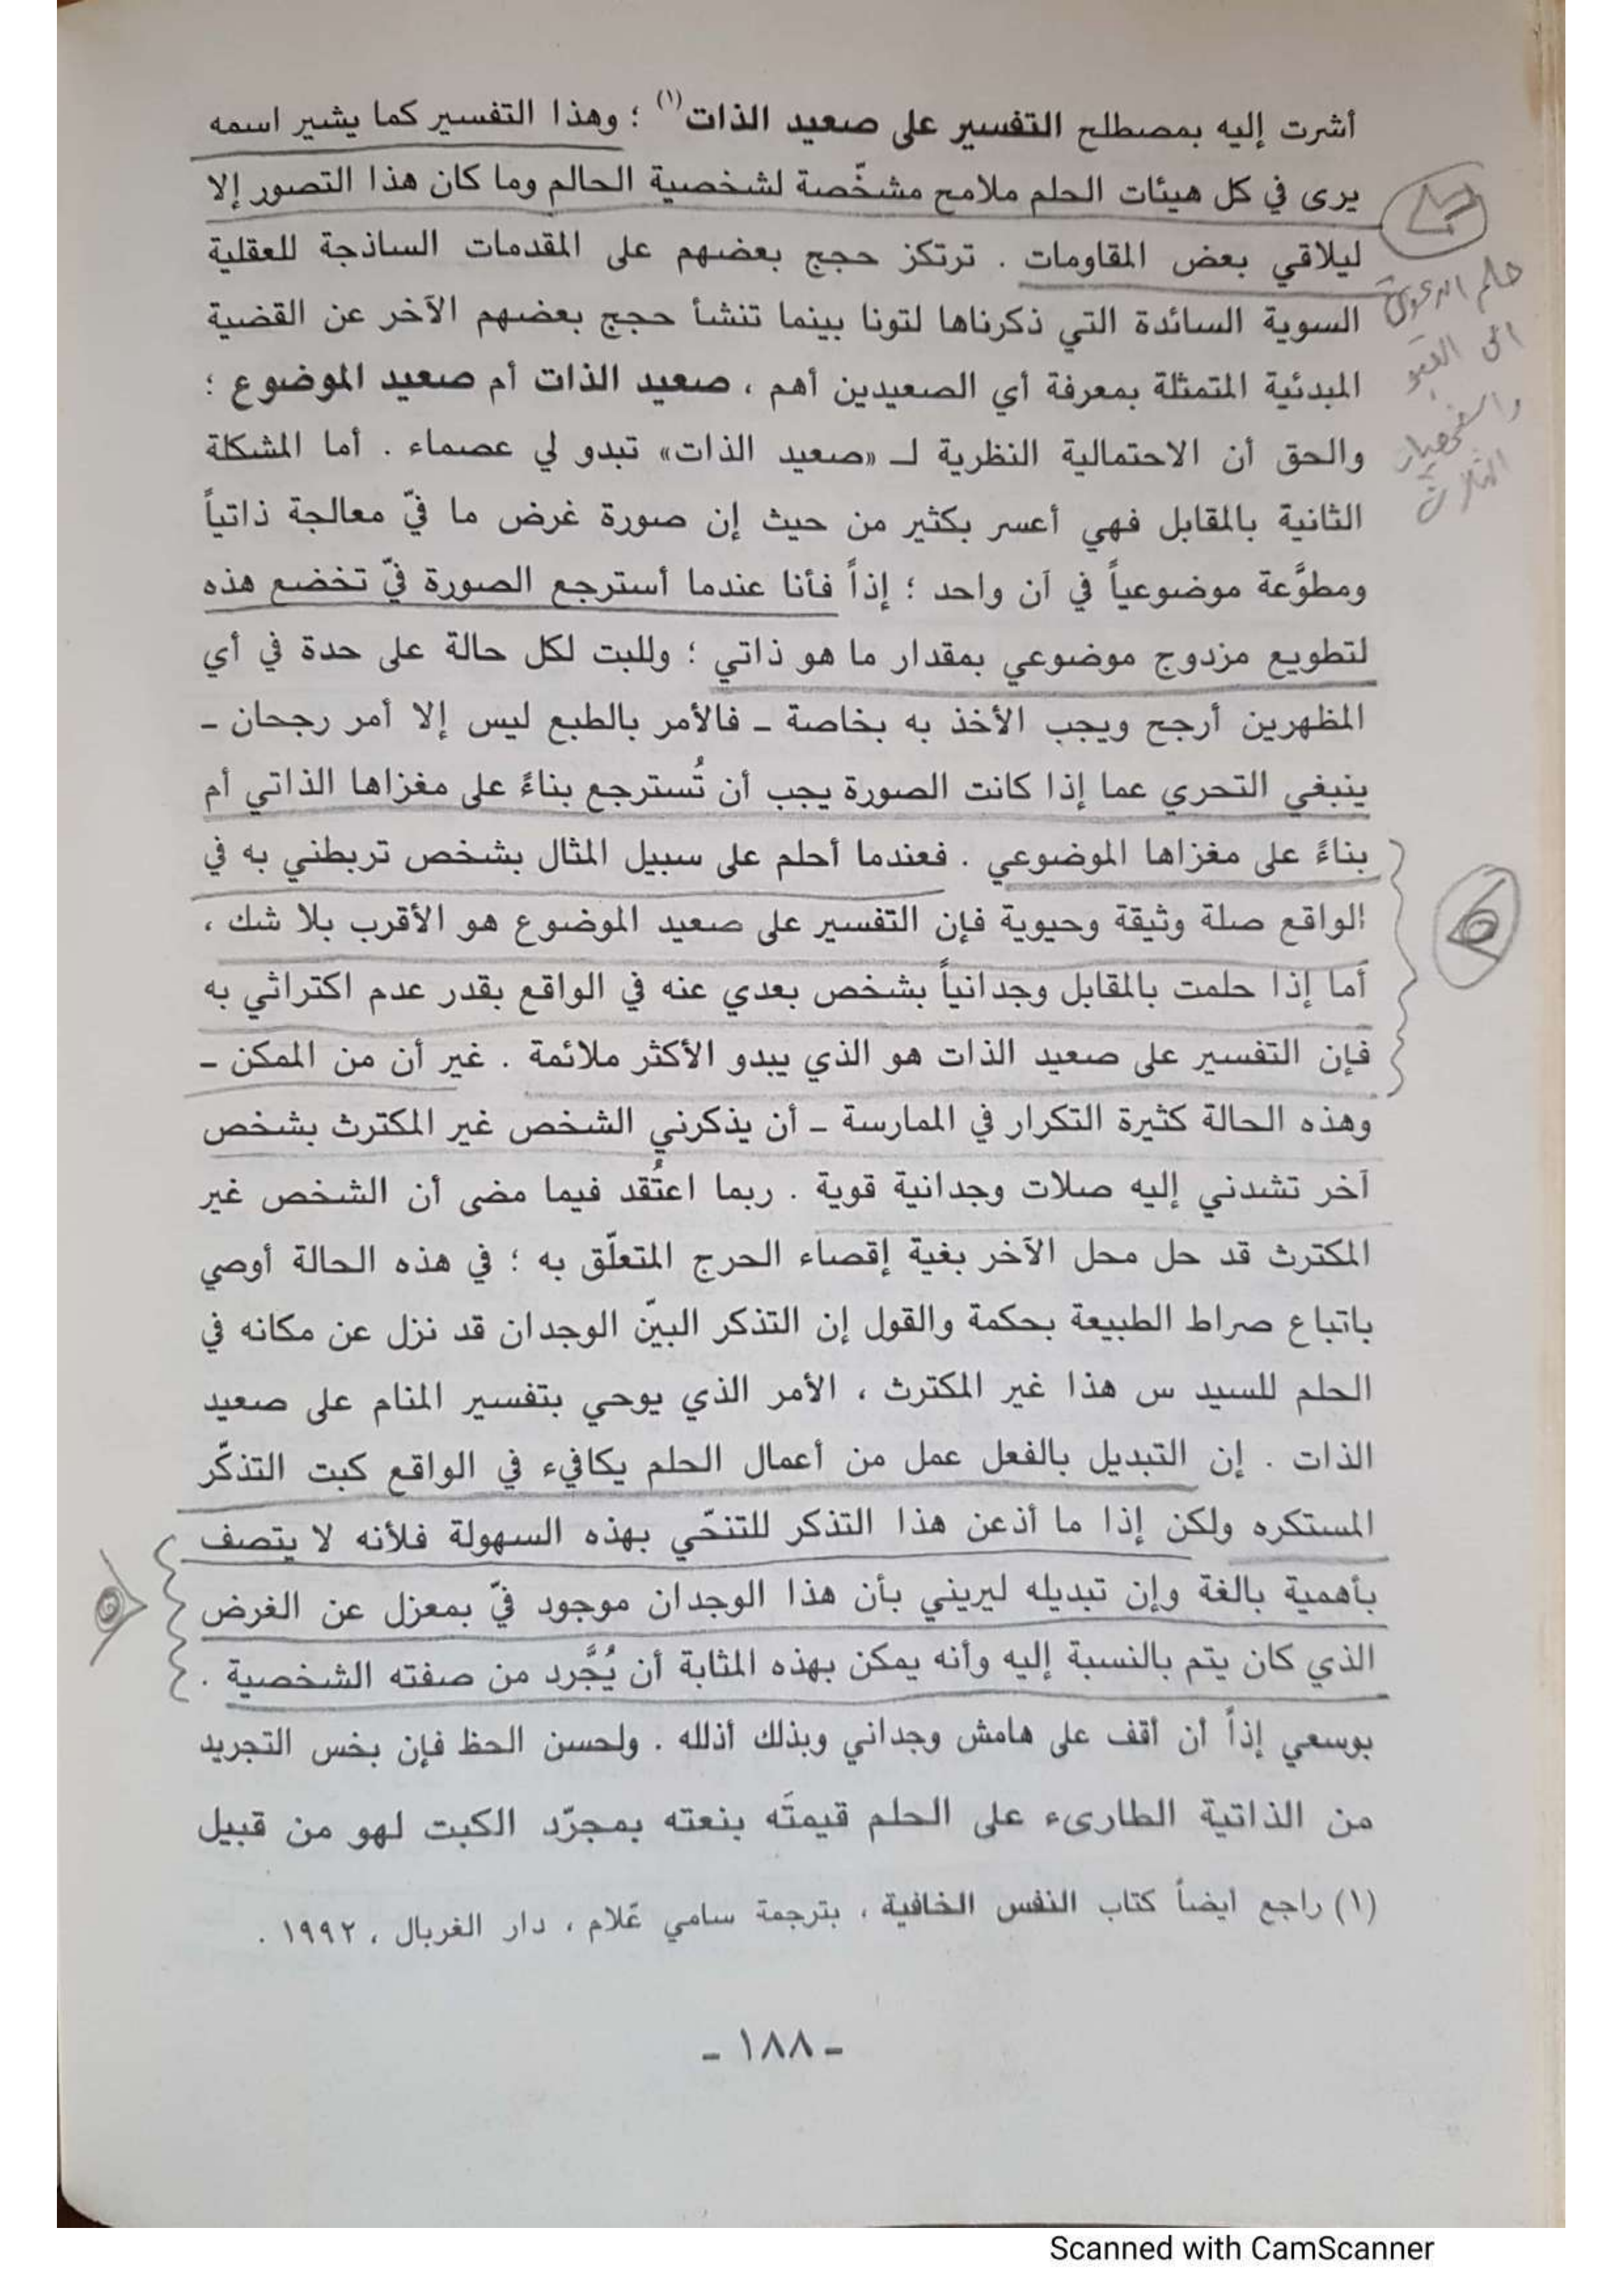 أشرت إليه بمصطلح التفسير على صعيد الذات (١) ؛ وهذا التفسير كما يشير اسمه
يرى في كل هيئات الحلم ملامح مشخّصة لشخصية الحالم وما كان هذا التصور إلا
ليلاقي بعض المقاومات . ترتكز حجج بعضهم على المقدمات الساذجة للعقلية
السوية السائدة التي ذكرناها لتونا بينما تنشأ حجج بعضهم الآخر عن القضية
المبدئية المتمثلة بمعرفة أي الصعيدين أهم ، صعيد الذات أم صعيد الموضوع ؛
والحق أن الاحتمالية النظرية لـ «صعيد الذات» تبدو لي عصماء . أما المشكلة
الثانية بالمقابل فهي أعسر بكثير من حيث إن صورة غرض ما فيّ معالجة ذاتياً
ومطوَّعة موضوعياً في آن واحد ؛ إذاً فأنا عندما أسترجع الصورة فيّ تخضع هذه
لتطويع مزدوج موضوعي بمقدار ما هو ذاتي ؛ وللبت لكل حالة على حدة في أي
المظهرين أرجح ويجب الأخذ به بخاصة ـ فالأمر بالطبع ليس إلا أمر رجحان ـ
ينبغي التحري عما إذا كانت الصورة يجب أن تُسترجع بناءً على مغزاها الذاتي أم
بناءً على مغزاها الموضوعي . فعندما أحلم على سبيل المثال بشخص تربطني به في
الواقع صلة وثيقة وحيوية فإن التفسير على صعيد الموضوع هو الأقرب بلا شك ،
أما إذا حلمت بالمقابل وجدانياً بشخص بعدي عنه في الواقع بقدر عدم اكتراثي به
فإن التفسير على صعيد الذات هو الذي يبدو الأكثر ملائمة . غير أن من الممكن ـ
وهذه الحالة كثيرة التكرار في الممارسة ـ أن يذكرني الشخص غير المكترث بشخص
آخر تشدني إليه صلات وجدانية قوية . ربما اعتُقد فيما مضى أن الشخص غير
المكترث قد حل محل الآخر بغية إقصاء الحرج المتعلّق به ؛ في هذه الحالة أوصي
باتباع صراط الطبيعة بحكمة والقول إن التذكر البيّن الوجدان قد نزل عن مكانه في
الحلم للسيد س هذا غير المكترث ، الأمر الذي يوحي بتفسير المنام على صعيد
الذات . إن التبديل بالفعل عمل من أعمال الحلم يكافيء في الواقع كبت التذكّر
المستكره ولكن إذا ما أذعن هذا التذكر للتنحّي بهذه السهولة فلأنه لا يتصف
بأهمية بالغة وإن تبديله ليريني بأن هذا الوجدان موجود فيّ بمعزل عن الغرض
الذي كان يتم بالنسبة إليه وأنه يمكن بهذه المثابة أن يُجَّرد من صفته الشخصية .
بوسعي إذاً أن أقف على هامش وجداني وبذلك أذلله . ولحسن الحظ فإن بخس التجريد
من الذاتية الطارىء على الحلم قيمتَه بنعته بمجرّد الكبت لهو من قبيل
(١) راجع أيضاً كتاب النفس الخافية ، بترجمة سامي عّلام ، دار الغربال ، ١٩٩٢ .
ـ ١٨٨ ـ
حلم
الى القبو
Scanned with CamScanner